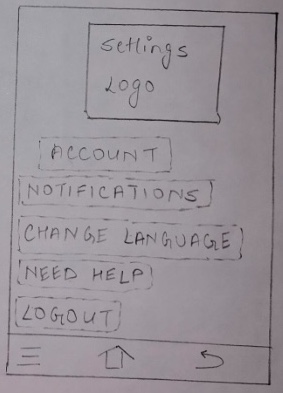 settings
Logo
ACCOUNT
NOTIFICATIONS
CHANGE LANGUAGE
NEED HELP
LOGOUT